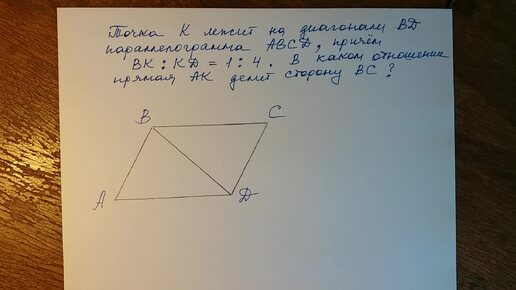 Точка К лежит на диагонали BD
параллелограмма ABCD, причём
BK : KD = 1 : 4. В каком отношении
прямая АК делит сторону BC?
B
C
A
D